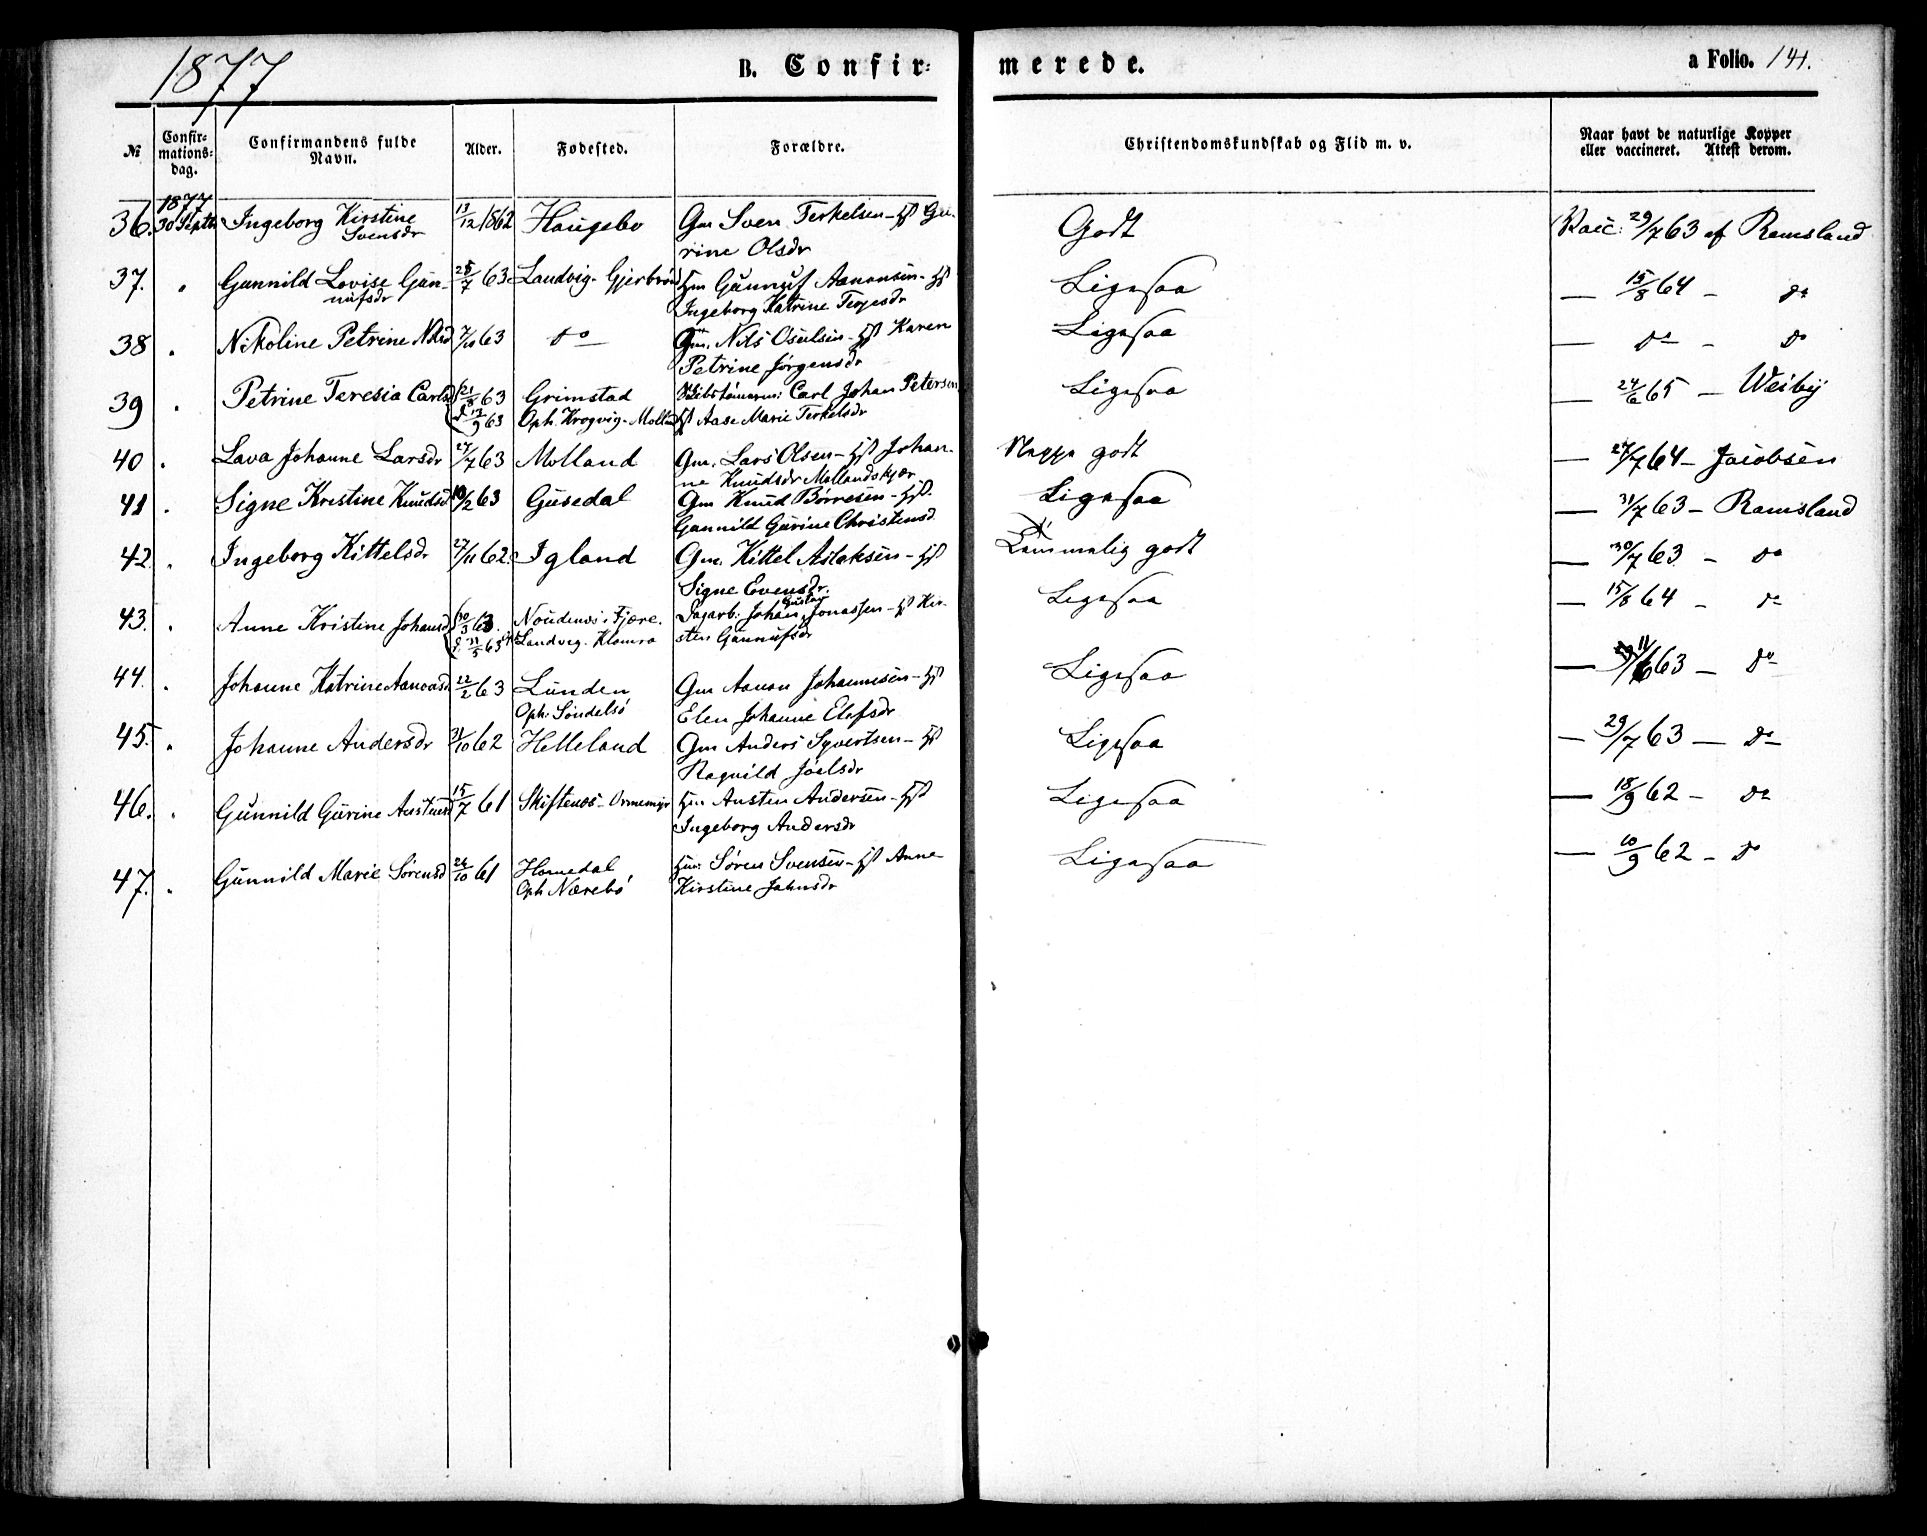 1877
B. Confir-
merede.
a Folio. 141.
№
Confir-
mations-
dag.
Confirmandens fulde
Navn.
Alder.
Fødested.
Forældre.
Christendomskundskab og Flid m. v.
Naar havt de naturlige Kopper
eller vaccineret. Attest derom.
1877
36. 30 Septb Ingeborg Kirstine 13/12 1862 Haugebo Gm Sven Terkelsen - Hst Gu- Godt Vacc: 29/7 63 af Ramsland
Svensdr rine Olsdr
37. " Gunnild Lovise Gun- 25/7 63 Landvig - Gm Gunnuf Aanonsen - Hst Ligesaa — 15/8 64 - do
nufsdr Ingeborg Katrine Terjesdr
38 " Nikoline Petrine Nilsd 7/11 63 do Gm. Nils Osulsen - Hst Karen Ligesaa — do - do
Petrine Jørgensdr
39 " Petrine Teresia Carlsd 21/8 63 Grimstad Skibstømrm: Carl Johan Petersen Ligesaa — 24/6 65 - Weiby
d. 13/9 63 Oph. Krogvig - Molland Hst Aase Marie Terkelsdr
40 " Lava Johanne Larsdr 27/7 63 Molland Gm. Lars Olsen - Hst Johan- Neppe godt — 27/7 64 - Jacobsen
ne Knudsdr Mollandskjær
41 " Signe Kristine Knudsd 10/2 63 Gusedal Gm Knud Børresen - Hst. Ligesaa — 31/7 63 - Ramsland
Gunnild Gurine Christensd
42. " Ingeborg Kittelsdr 27/11 62. Igland Gm. Kittel Aslaksen - Hst Temmelig godt — 30/7 63 - do
Signe Evensdr.
43. " Anne Kristine Johansd 30/3 63. Fjære. Dagarb: Johan Gustav Jonassen - Hst Kir- Ligesaa — 15/8 64 - do
d. 31/5 63 Landvig. Klomra sten Gunnufsdr
44. " Johanne Katrine Aanonsd 22/2 63 Lunden Gm Aanon Johannesen - Hst Ligesaa — 63 - do
Oph: Søndelsø Elen Johanne Elefsdr
45. " Johanne Andersdr 31/10 62 Helleland Gm Anders Syvertsen - Hst Ligesaa — 29/7 63 — do
Ragnild Joelsdr
46. " Gunnild Gurine Austensd 15/7 61 Skiftenes - Ormemyr Hm Austen Andersen - Hst Ligesaa — 18/9 62 - do
Ingeborg Andersdr
47. " Gunnild Marie Sørensd 26/10 61 Homedal Hm: Søren Svensen - Hst Anne Ligesaa — 10/9 62 - do
Oph Nærebø Kirstine Jahnsdr